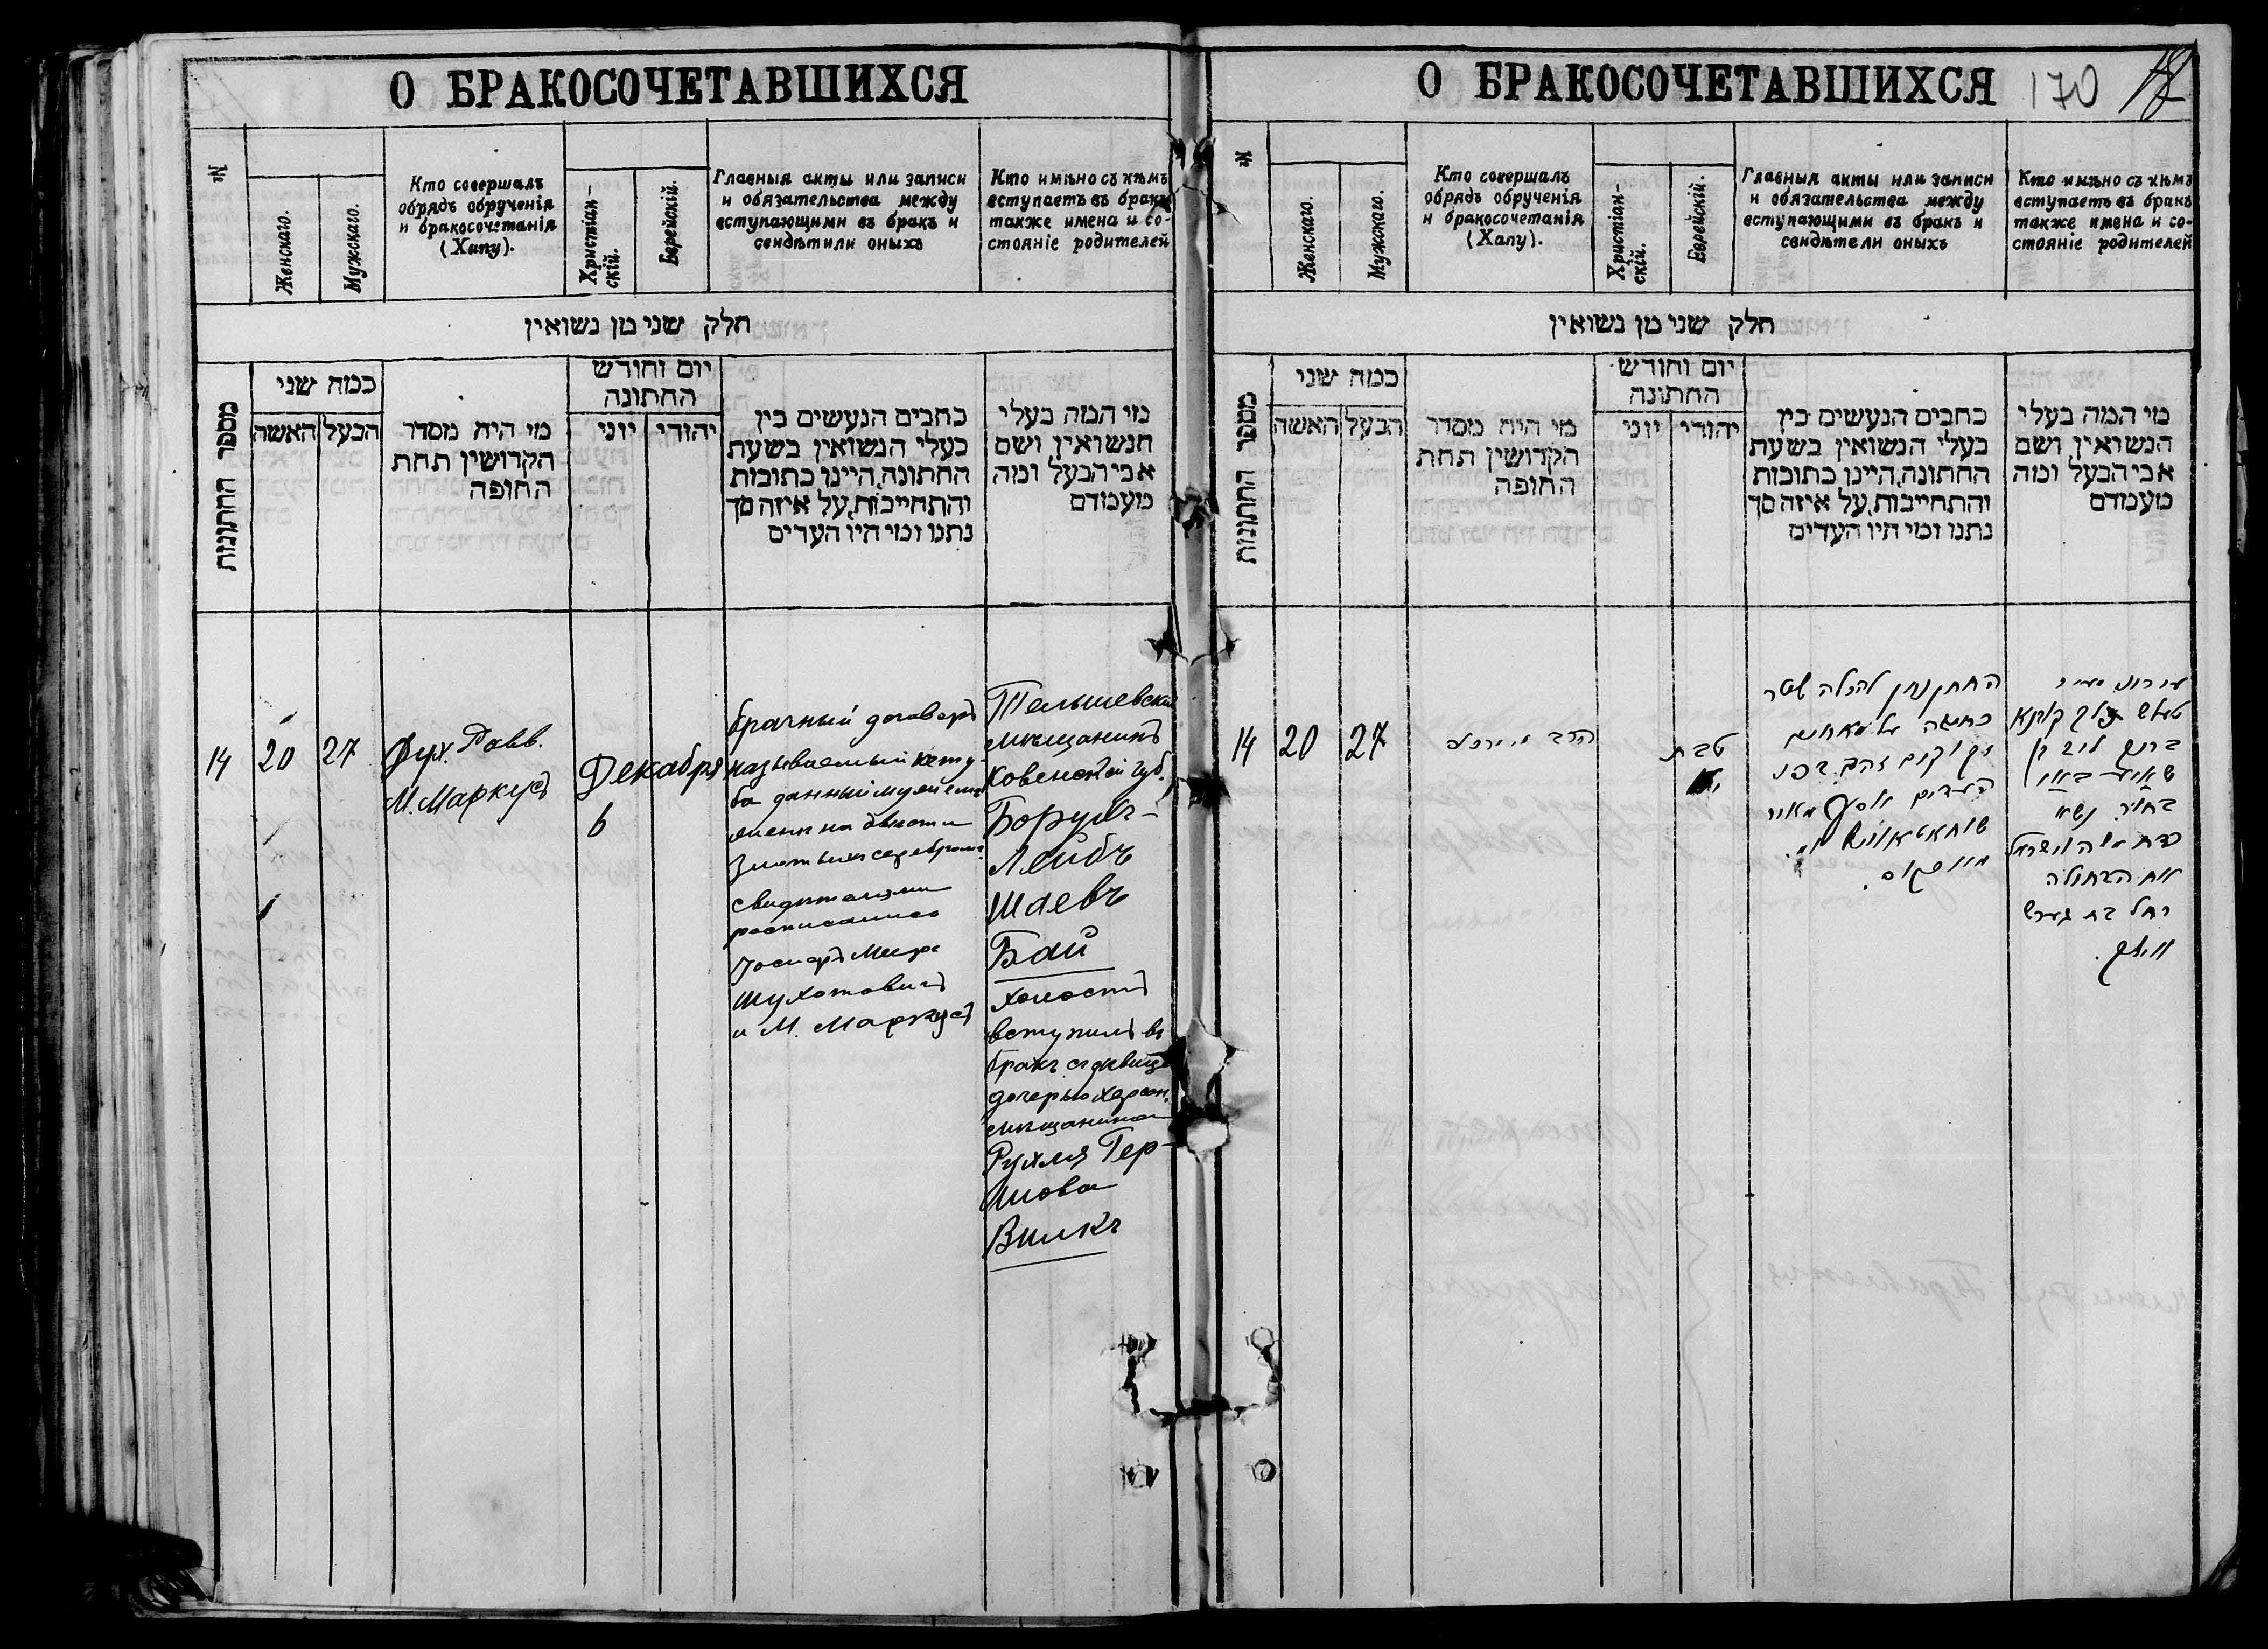 О БРАКОСОЧЕТАВШИХСЯ
№
Женскаго.
Мужскаго.
Кто совершалъ
обрядъ обрученія
и бракосочетанія
(Хапу).
Христіан-
скій.
Еврейскій.
Главныя акты или записи
и обязательства между
вступающими въ бракъ и
свидѣтили оныхъ
Кто имѣно съ кѣмъ
вступаетъ въ бракъ
также имена и со-
стояніе родителей
חלק שני מן נשואין
מספר החתונות
כמה שני
האשה
הבעל
מי היה מסדר
הקדושין תחת
החופה
יום וחודש
החתונה
יוני
יהודי
כתבים הנעשים בין
בעלי הנשואין בשעת
החתונה, היינו כתובות
והתחייבות, על איזה סך
נתנו ומי היו העדים
מי המה בעלי
הנשואין, ושם
אבי הבעל ומה
מעמדם
14
20
27
Дух. Равв.
М. Маркусъ
Декабря
6
брачный договоръ
называемый кету-
ба данный мужемъ
жены на двѣсти
злотыхъ серебромъ
свидѣтелями
росписались
Мееръ
Шухотовичъ
и М. Маркусъ
Тельшевскій
мѣщанинъ
Ковенской губ.
Борухъ-
Лейбъ
Шаевъ
Бай
холостъ
вступилъ въ
бракъ съ дѣвицею
дочерью Херсон.
мѣщанина
Рухля Гер-
шова
Вилкъ
О БРАКОСОЧЕТАВШИХСЯ
170
№
Женскаго.
Мужскаго.
Кто совершалъ
обрядъ обрученія
и бракосочетанія
(Хапу).
Христіан-
скій.
Еврейскій.
Главныя акты или записи
и обязательства между
вступающими въ бракъ и
свидѣтели оныхъ
Кто имѣно съ кѣмъ
вступаетъ въ бракъ
также имена и со-
стояніе родителей
חלק שני מן נשואין
מספר החתונות
כמה שני
האשה
הבעל
מי היה מסדר
הקדושין תחת
החופה
יום וחודש
החתונה
יוני
יהודי
כתבים הנעשים בין
בעלי הנשואין בשעת
החתונה, היינו כתובות
והתחייבות, על איזה סך
נתנו ומי היו העדים
מי המה בעלי
הנשואין, ושם
אבי הבעל ומה
מעמדם
14
20
27
הרב
טבת
החתן נתן לכלה שטר
כתובה על מאתים
זקוקים זהב
העדים יוסף מאיר
מארקוס.
פלך קאוונא
ברוך ליב בן
שאיע באי
בחור נשא
כדת משה וישראל
את הבתולה
רחל בת הערש
ווילק.